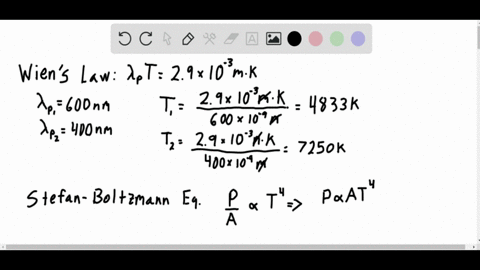 Wien's Law: λpT = 2.9×10⁻³ m·K
λp₁ = 600nm
λp₂ = 400nm
T₁ = 2.9×10⁻³ m·K / 600×10⁻⁹ m = 4833K
T₂ = 2.9×10⁻³ m·K / 400×10⁻⁹ m = 7250K
Stefan-Boltzmann Eq. P/A ∝ T⁴ => P∝AT⁴